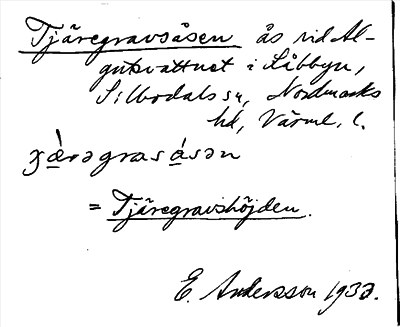 Tjäregravsåsen ås vid Al-
gutsvattnet i Låbbyn,
Silbodals sn, Nordmarks
hd, Värml. l.
χæ̀rəgrasásən
= Tjäregravshöjden.
E. Andersson 193